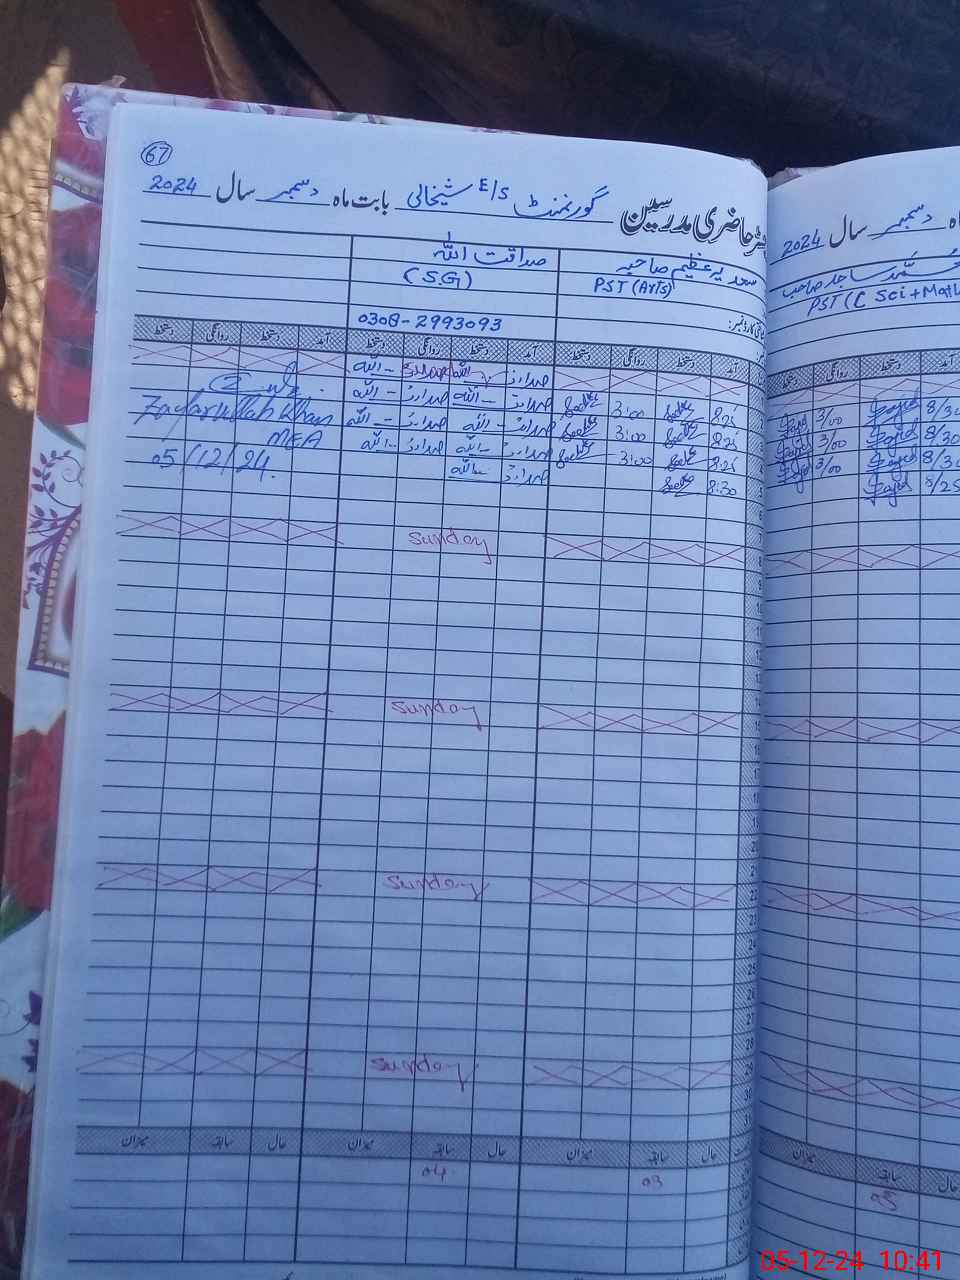 67
رجسٹر حاضری مدرسین گورنمنٹ E/S شیخالی بابت ماہ دسمبر سال 2024
سعدیہ عظیم صاحبہ صداقت اللہ
PST (Arts) (S.G)
0308-2993093
آمد دستخط روانگی دستخط آمد دستخط روانگی دستخط آمد دستخط روانگی دستخط
8:25 3:00
8:25 3:00
8:25 3:00
8:30
Zafarullah Khan
MEA
05/12/24
Sunday
Sunday
Sunday
Sunday
حال سابقہ میزان حال سابقہ میزان حال سابقہ میزان
03 04
ماہ دسمبر سال 2024
محمد ساجد صاحب
PST (C Sci + Math
آمد دستخط روانگی دستخط
8/30 Sajid 3/00 Sajid
8/30 Sajid 3/00 Sajid
8/30 Sajid 3/00 Sajid
8/25 Sajid
حال سابقہ میزان
05
05-12-24 10:41